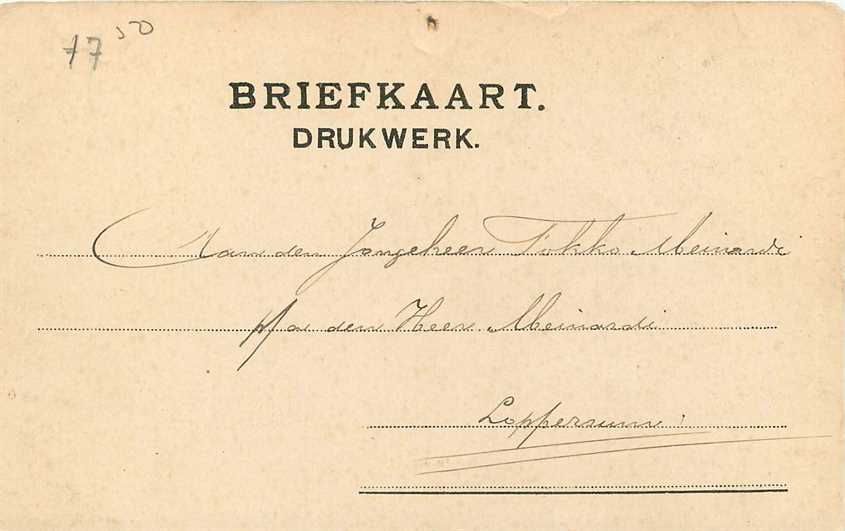 17 50
BRIEFKAART.
DRUKWERK.
Aan den Jongeheer Fokko Meinardi
p/a den Heer Meinardi
Loppersum